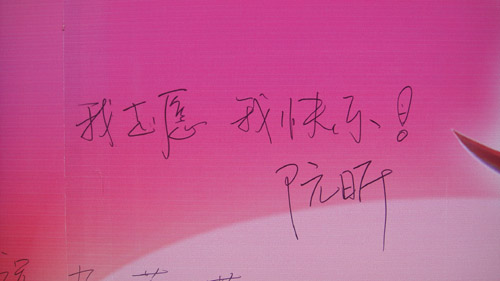 我志愿 我快乐!
阮昕